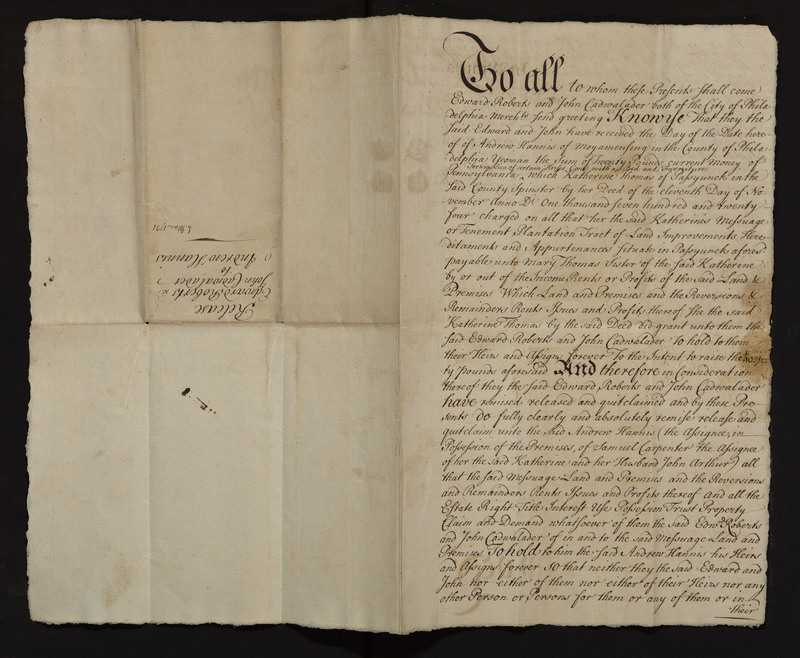 To all to whom these Presents shall come
Edward Roberts and John Cadwalader both of the City of Phila
delphia Merchts Send greeting Know ye That they the
said Edward and John have received the Day of the Date here
of of Andrew Hannis of Moyamensing in the County of Phila
delphia Yeoman the Sum of Twenty Pounds current Money of
Pennsylvania, which Katherine Thomas of Passyunck in the
said County Spinster by her Deed of the eleventh Day of No
vember Anno Di. One thousand seven hundred and twenty
four charged on all that her the said Katherines Messuage
or Tenement Plantation Tract of Land Improvements Here
ditaments and Appurtenances situate in Passyunck afores
payable unto Mary Thomas Sister of the said Katherine
by ot out of the Income Rents or Profits of the said Land &
Premises Which Land and Premises and the Reversions &
Remainders Rents Issues and Profits thereof She the said
Katherine Thomas by the said Deed did grant unto them the
said Edward Roberts and John Cadwalader To hold to them
their Heirs and Assigns forever To the Intent to raise the
ty Pounds aforesaid And therefore in Consideration
thereof they the said Edward Roberts and John Cadwalader
have remised released and quitclaimed and by these Pre
sents do fully clearly and absolutely remise release and
quitclaim unto the said Andrew Hannis (the Assignee, in
Possession of the Premises, of Samuel Carpenter the Assignee
of her the said Katherine and her Husband John Arthur) all
that the said Messuage Land and Premises and the Reversions
and Remainders Rents Issues and Profits thereof And all the
Estate Right Title Interest Use Possession Trust Property
Claim and Demand whatsoever of them the said Edwd Roberts
and John Cadwalader of in and to the said Messuage Land and
Premises To hold to him the said Andrew Hannis his Heirs
and Assigns forever So that neither they the said Edward and
John nor either of them nor either of their Heirs nor any
other Person or Persons for them or any of them or in
their
Release
Edward Roberts &
John Cadwalader
to
Andrew Hannis
1751